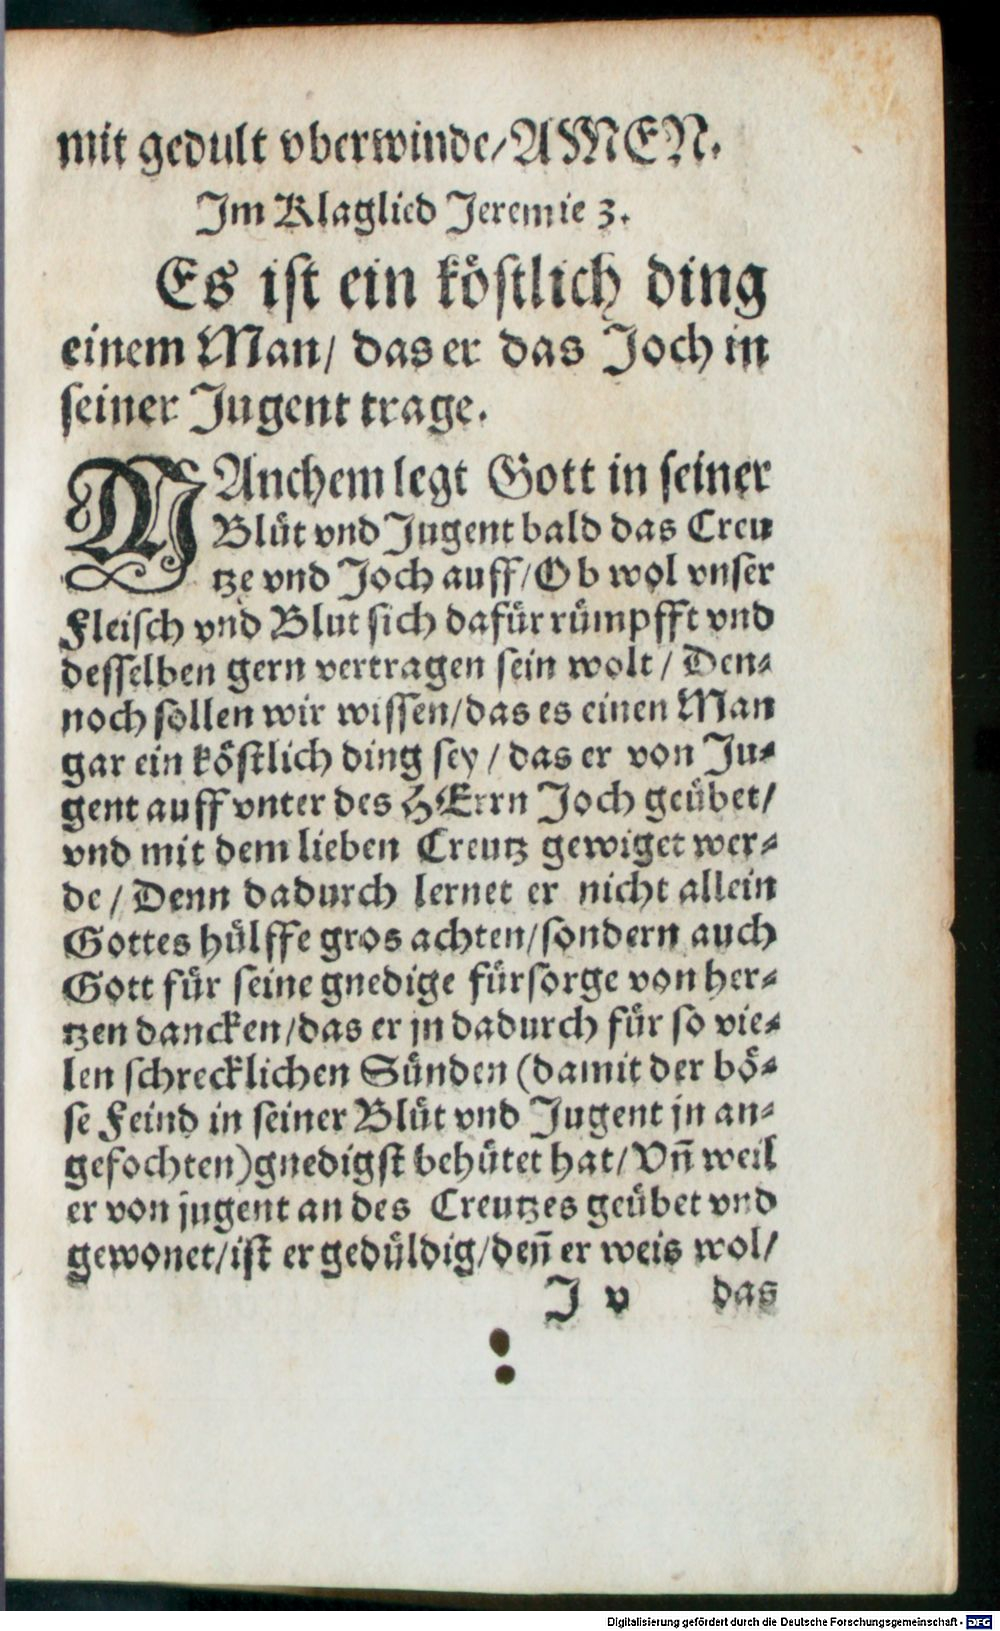 mit gedult vberwinde/ AMEN.
Im Klaglied Jeremie 3.
Es ist ein köstlich ding
einem Man/ das er das Joch in
seiner Jugent trage.
MAnchem legt Gott in seiner
Blüt vnd Jugent bald das Creu
tze vnd Joch auff/ Ob wol vnser
Fleisch vnd Blut sich dafür rümpfft vnd
desselben gern vertragen sein wolt/ Den-
noch sollen wir wissen/ das es einen Man
gar ein köstlich ding sey/ das er von Ju-
gent auff vnter des HErrn Joch geübet/
vnd mit dem lieben Creutz gewiget wer-
de/ Denn dadurch lernet er nicht allein
Gottes hülffe gros achten/ sondern auch
Gott für seine gnedige fürsorge von her-
tzen dancken/ das er jn dadurch für so vie-
len schrecklichen Sünden (damit der bö-
se Feind in seiner Blüt vnd Jugent jn an-
gefochten) gnedigst behütet hat/ Vñ weil
er von jugent an des Creutzes geübet vnd
gewonet/ ist er gedüldig/ deñ er weis wol/
J v das
Digitalisierung gefördert durch die Deutsche Forschungsgemeinschaft - DFG